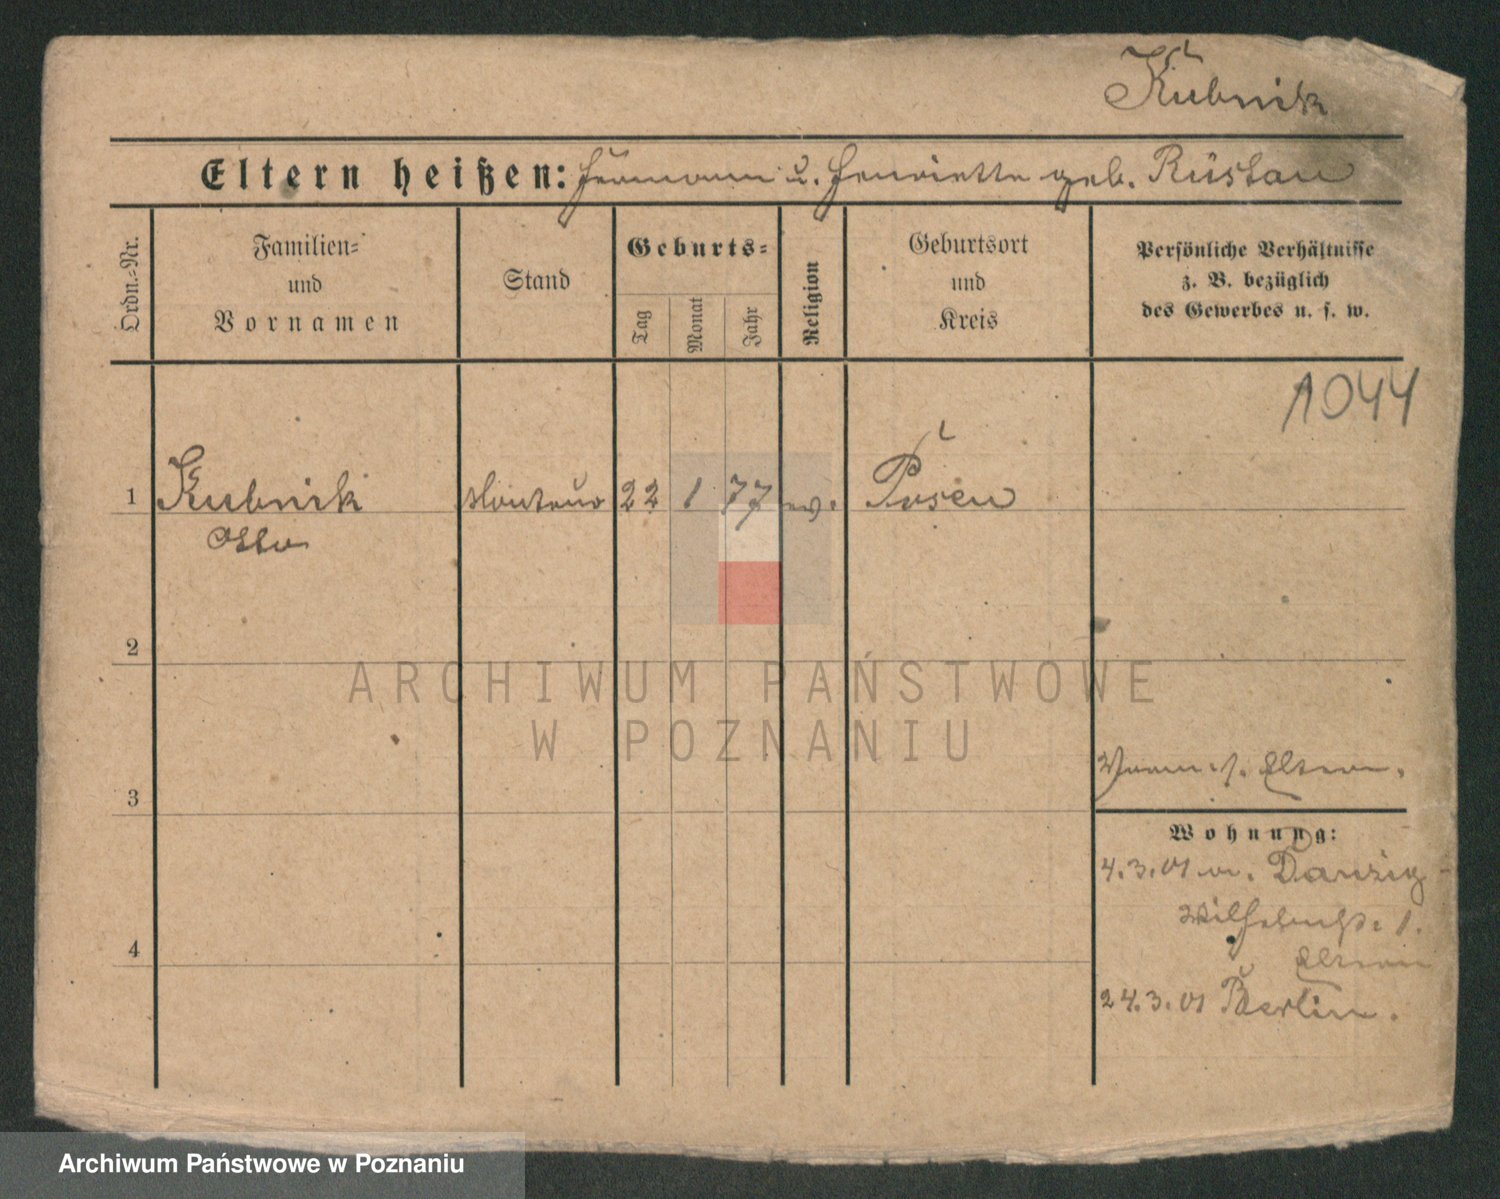 Kubnik
Eltern heißen: Hermann u. Henriette geb. Rüstau
Ordn.-Nr.
Familien-
und
Vornamen
Stand
Geburts-
Tag
Monat
Jahr
Religion
Geburtsort
und
Kreis
Persönliche Verhältnisse
z. B. bezüglich
des Gewerbes u. s. w.
1044
1 Kubnik Monteur 22 1 77 ev. Posen
Otto
2
ARCHIWUM PAŃSTWOWE
W POZNANIU
Eltern.
3
Wohnung:
4.3.01 v. Danzig
Wilhelmstr. 1.
Eltern
4
24.3.01 Berlin.
Archiwum Państwowe w Poznaniu